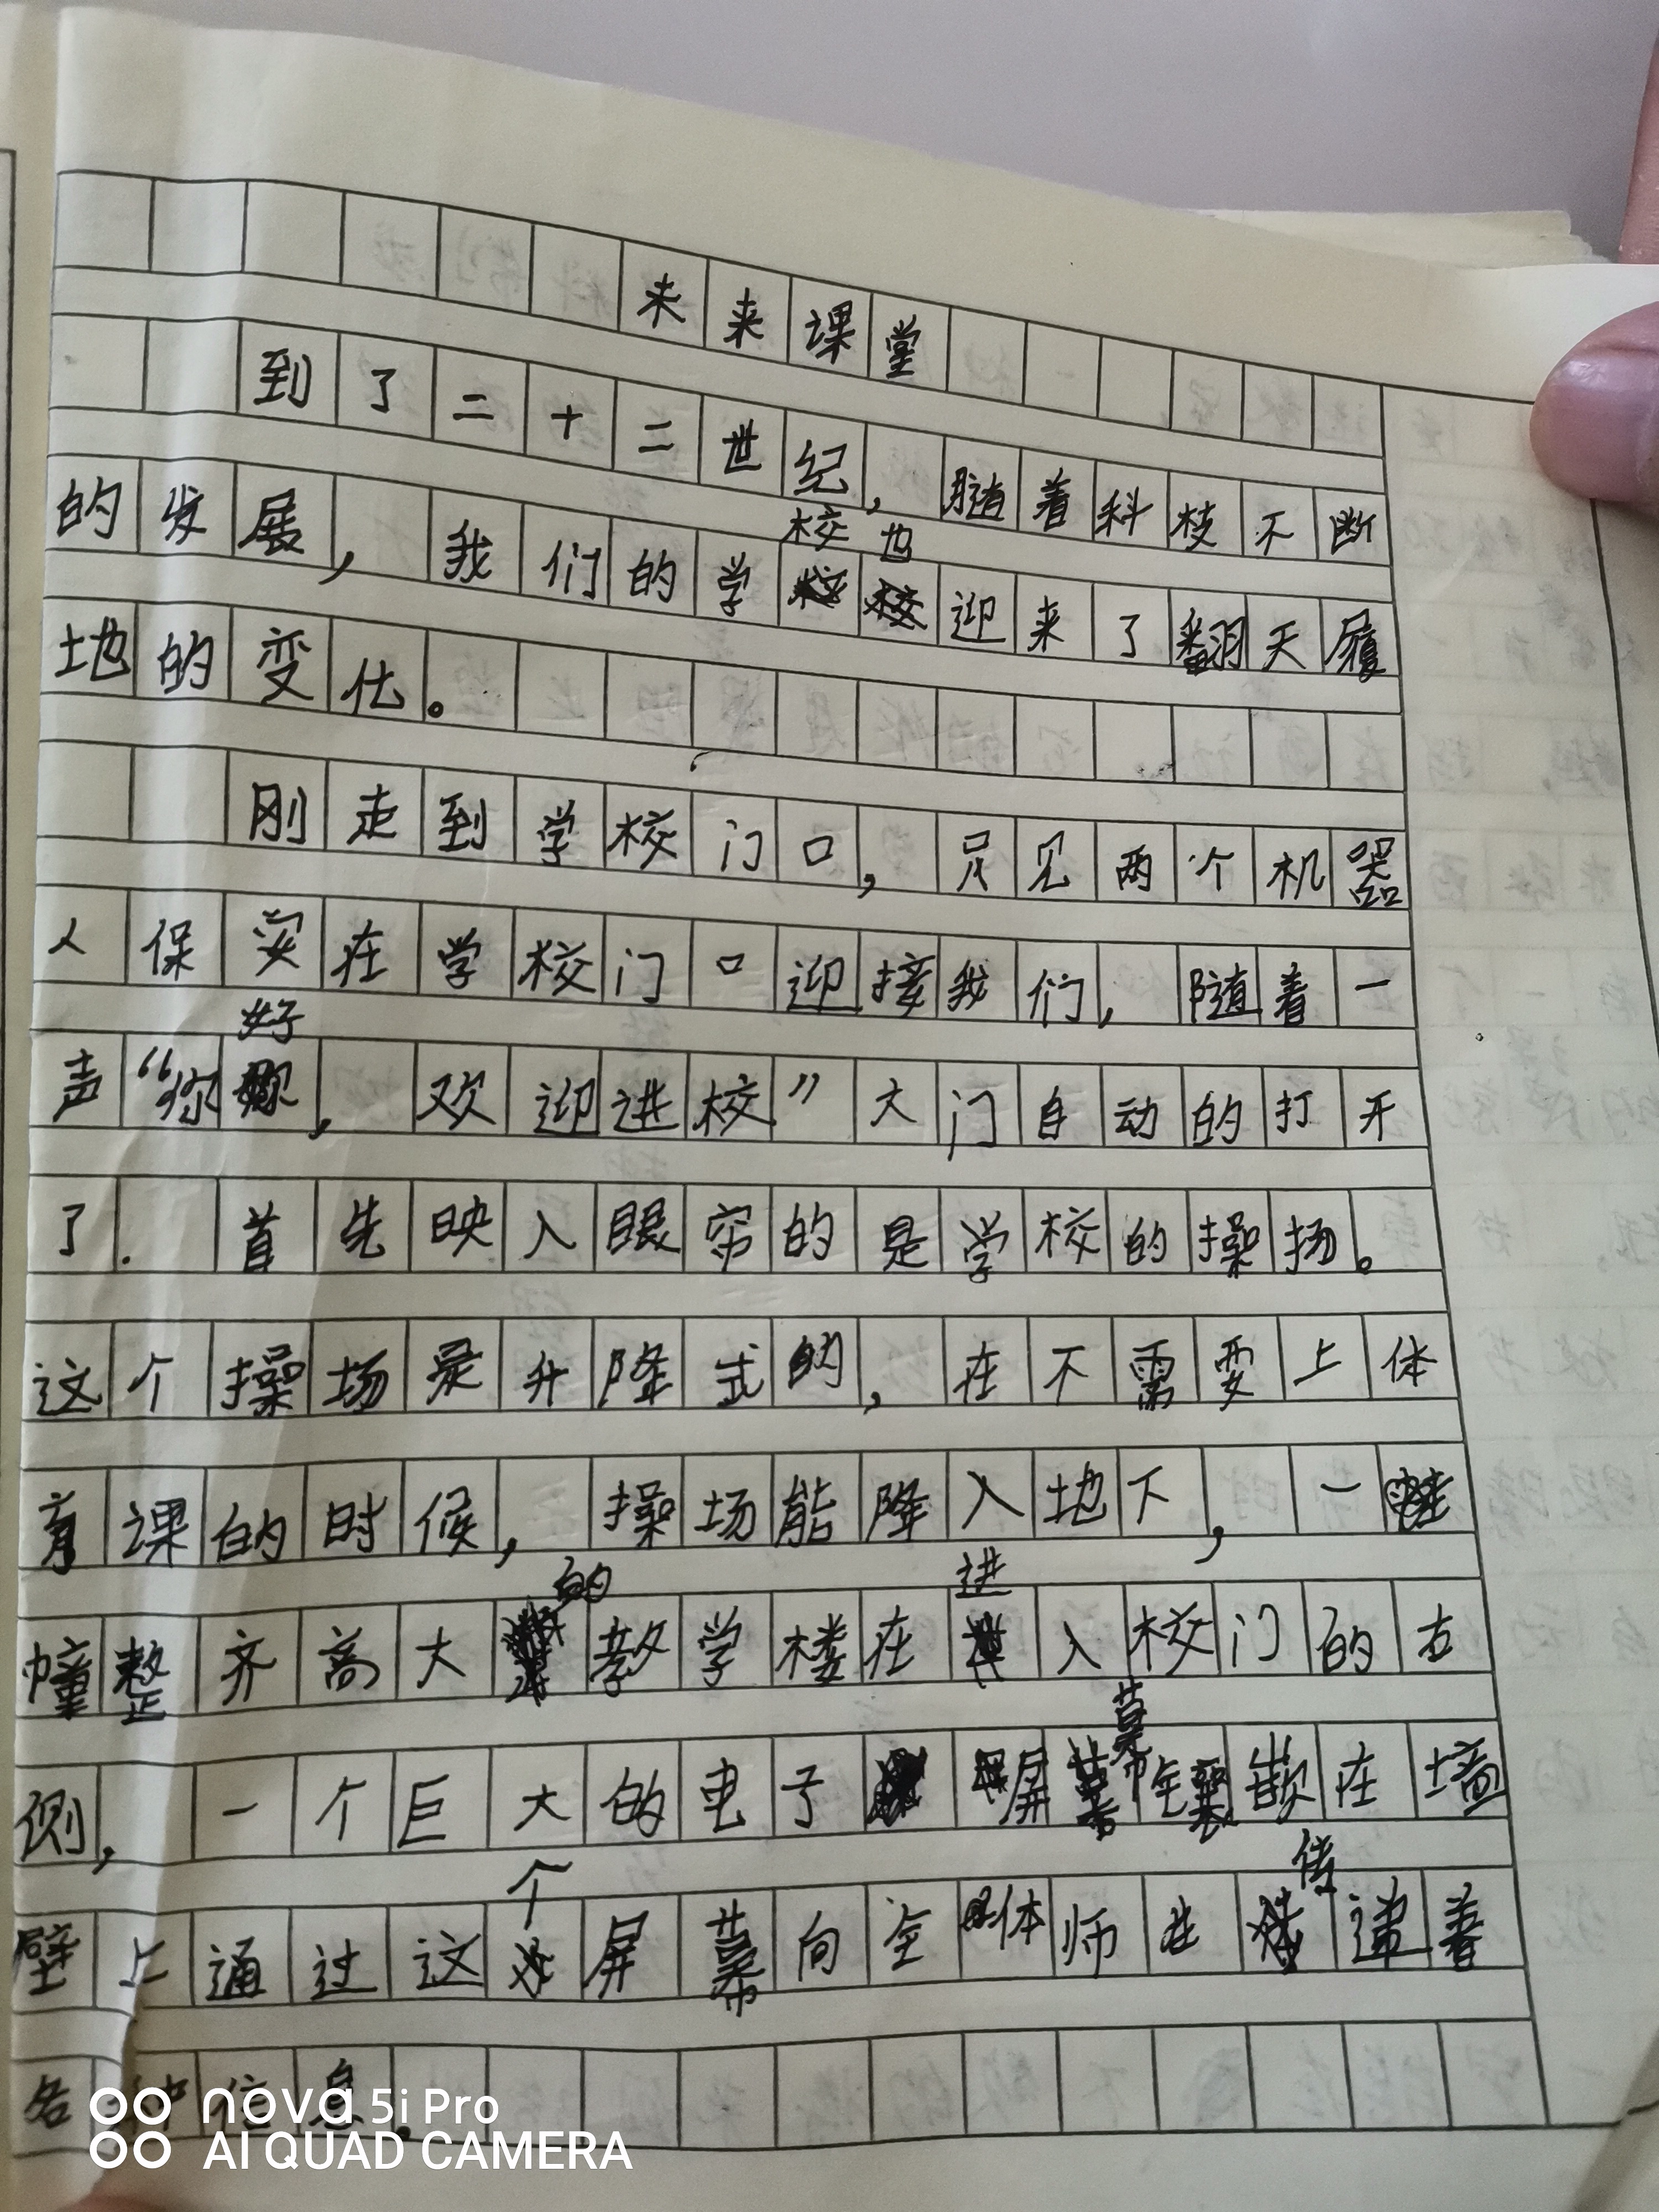 未来课堂
到了二十二世纪，随着科枝不断
的发展，我们的学校也迎来了翻天履
地的变化。
刚走到学校门口，只见两个机器
人保安在学校门口迎接我们，随着一
声“你好，欢迎进校”大门自动的打开
了.首先映入眼帘的是学校的操场。
这个操场是升降式的，在不需要上体
育课的时候，操场能降入地下，一
幢整齐高大的教学楼在进入校门的右
侧，一个巨大的电子屏幕镶嵌在墙
壁上通过这个屏幕向全体师生传递着
各种信息.
nova 5i Pro
AI QUAD CAMERA